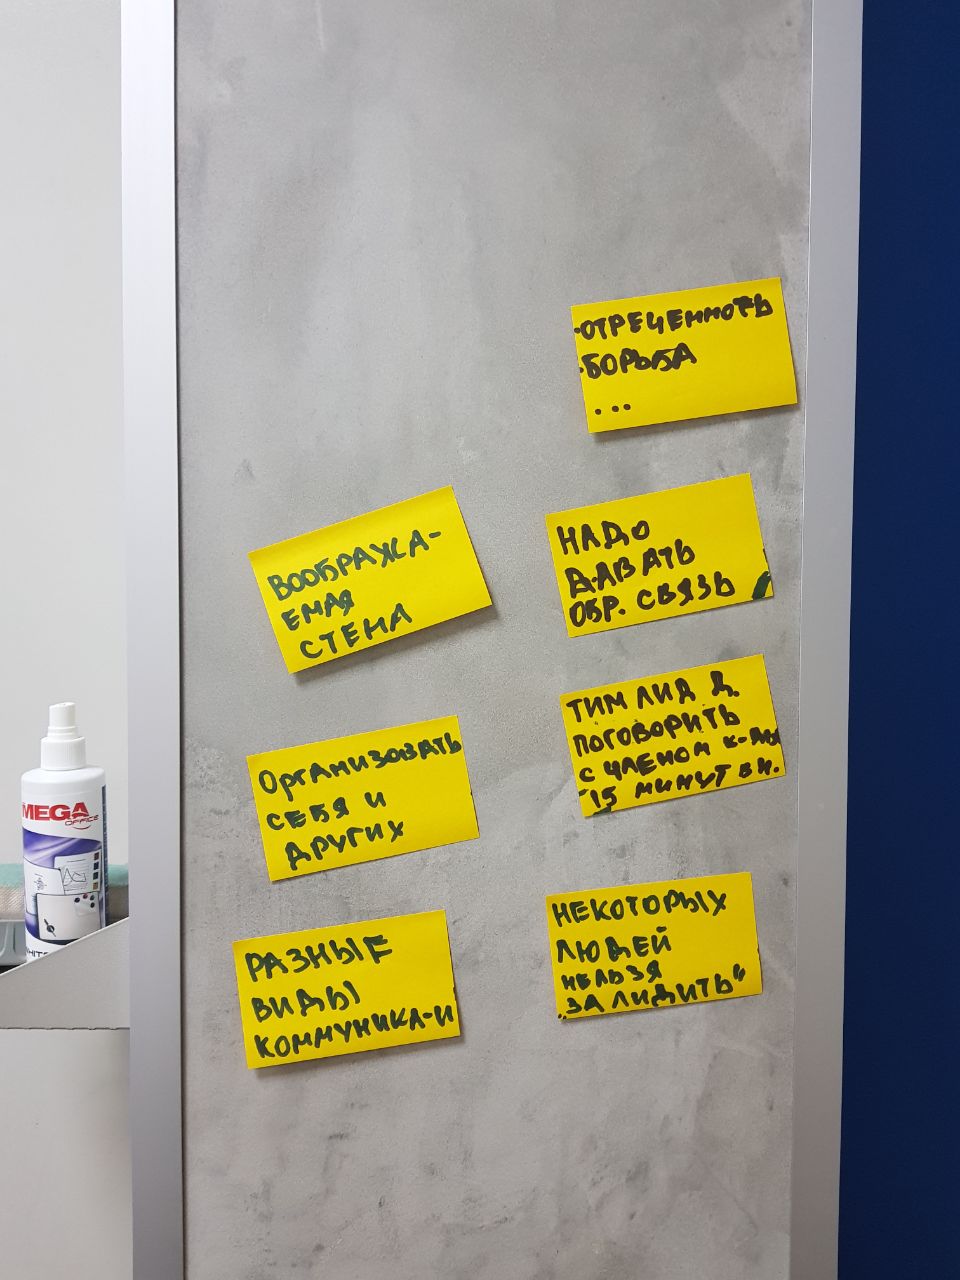 ·ОТРЕЧЕННОТЬ
·БОРЬБА
...
ВООБРАЖА-
ЕМАЯ
СТЕНА
НАДО
ДАВАТЬ
ОБР. СВЯЗЬ
ОРГАНИЗОВАТЬ
СЕБЯ И
ДРУГИХ
ТИМ ЛИД Д.
ПОГОВОРИТЬ
С ЧЛЕНОМ К-ДЫ
15 МИНУТ
РАЗНЫЕ
ВИДЫ
КОММУНИКА-И
НЕКОТОРЫХ
ЛЮДЕЙ
НЕЛЬЗЯ
„ЗАЛИДИТЬ“
MEGA
OFFICE